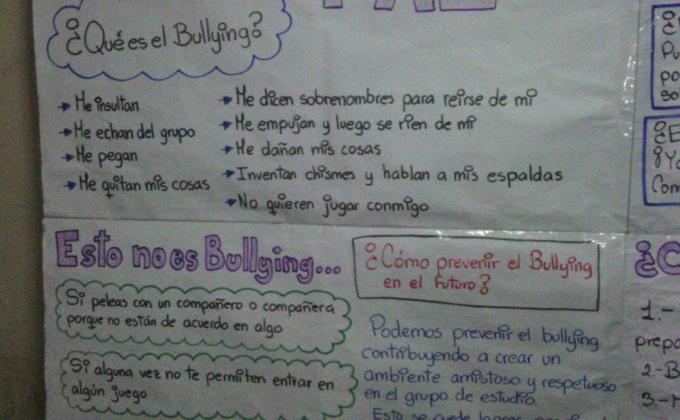 ¿Qué es el Bullying?
Me insultan
Me echan del grupo
Me pegan
Me quitan mis cosas
Me dicen sobrenombres para reirse de mi
Me empujan y luego se rien de mi
Me dañan mis cosas
Inventan chismes y hablan a mis espaldas
No quieren jugar conmigo
Esto no es Bullying...
Si peleas con un compañero o compañera
porque no están de acuerdo en algo
Si alguna vez no te permiten entrar en
algún juego
¿Cómo prevenir el Bullying
en el futuro?
Podemos prevenir el bullying
contribuyendo a crear un
ambiente amistoso y respetuoso
en el grupo de estudio.
Esto se puede lograr
1.-
2-
3.-